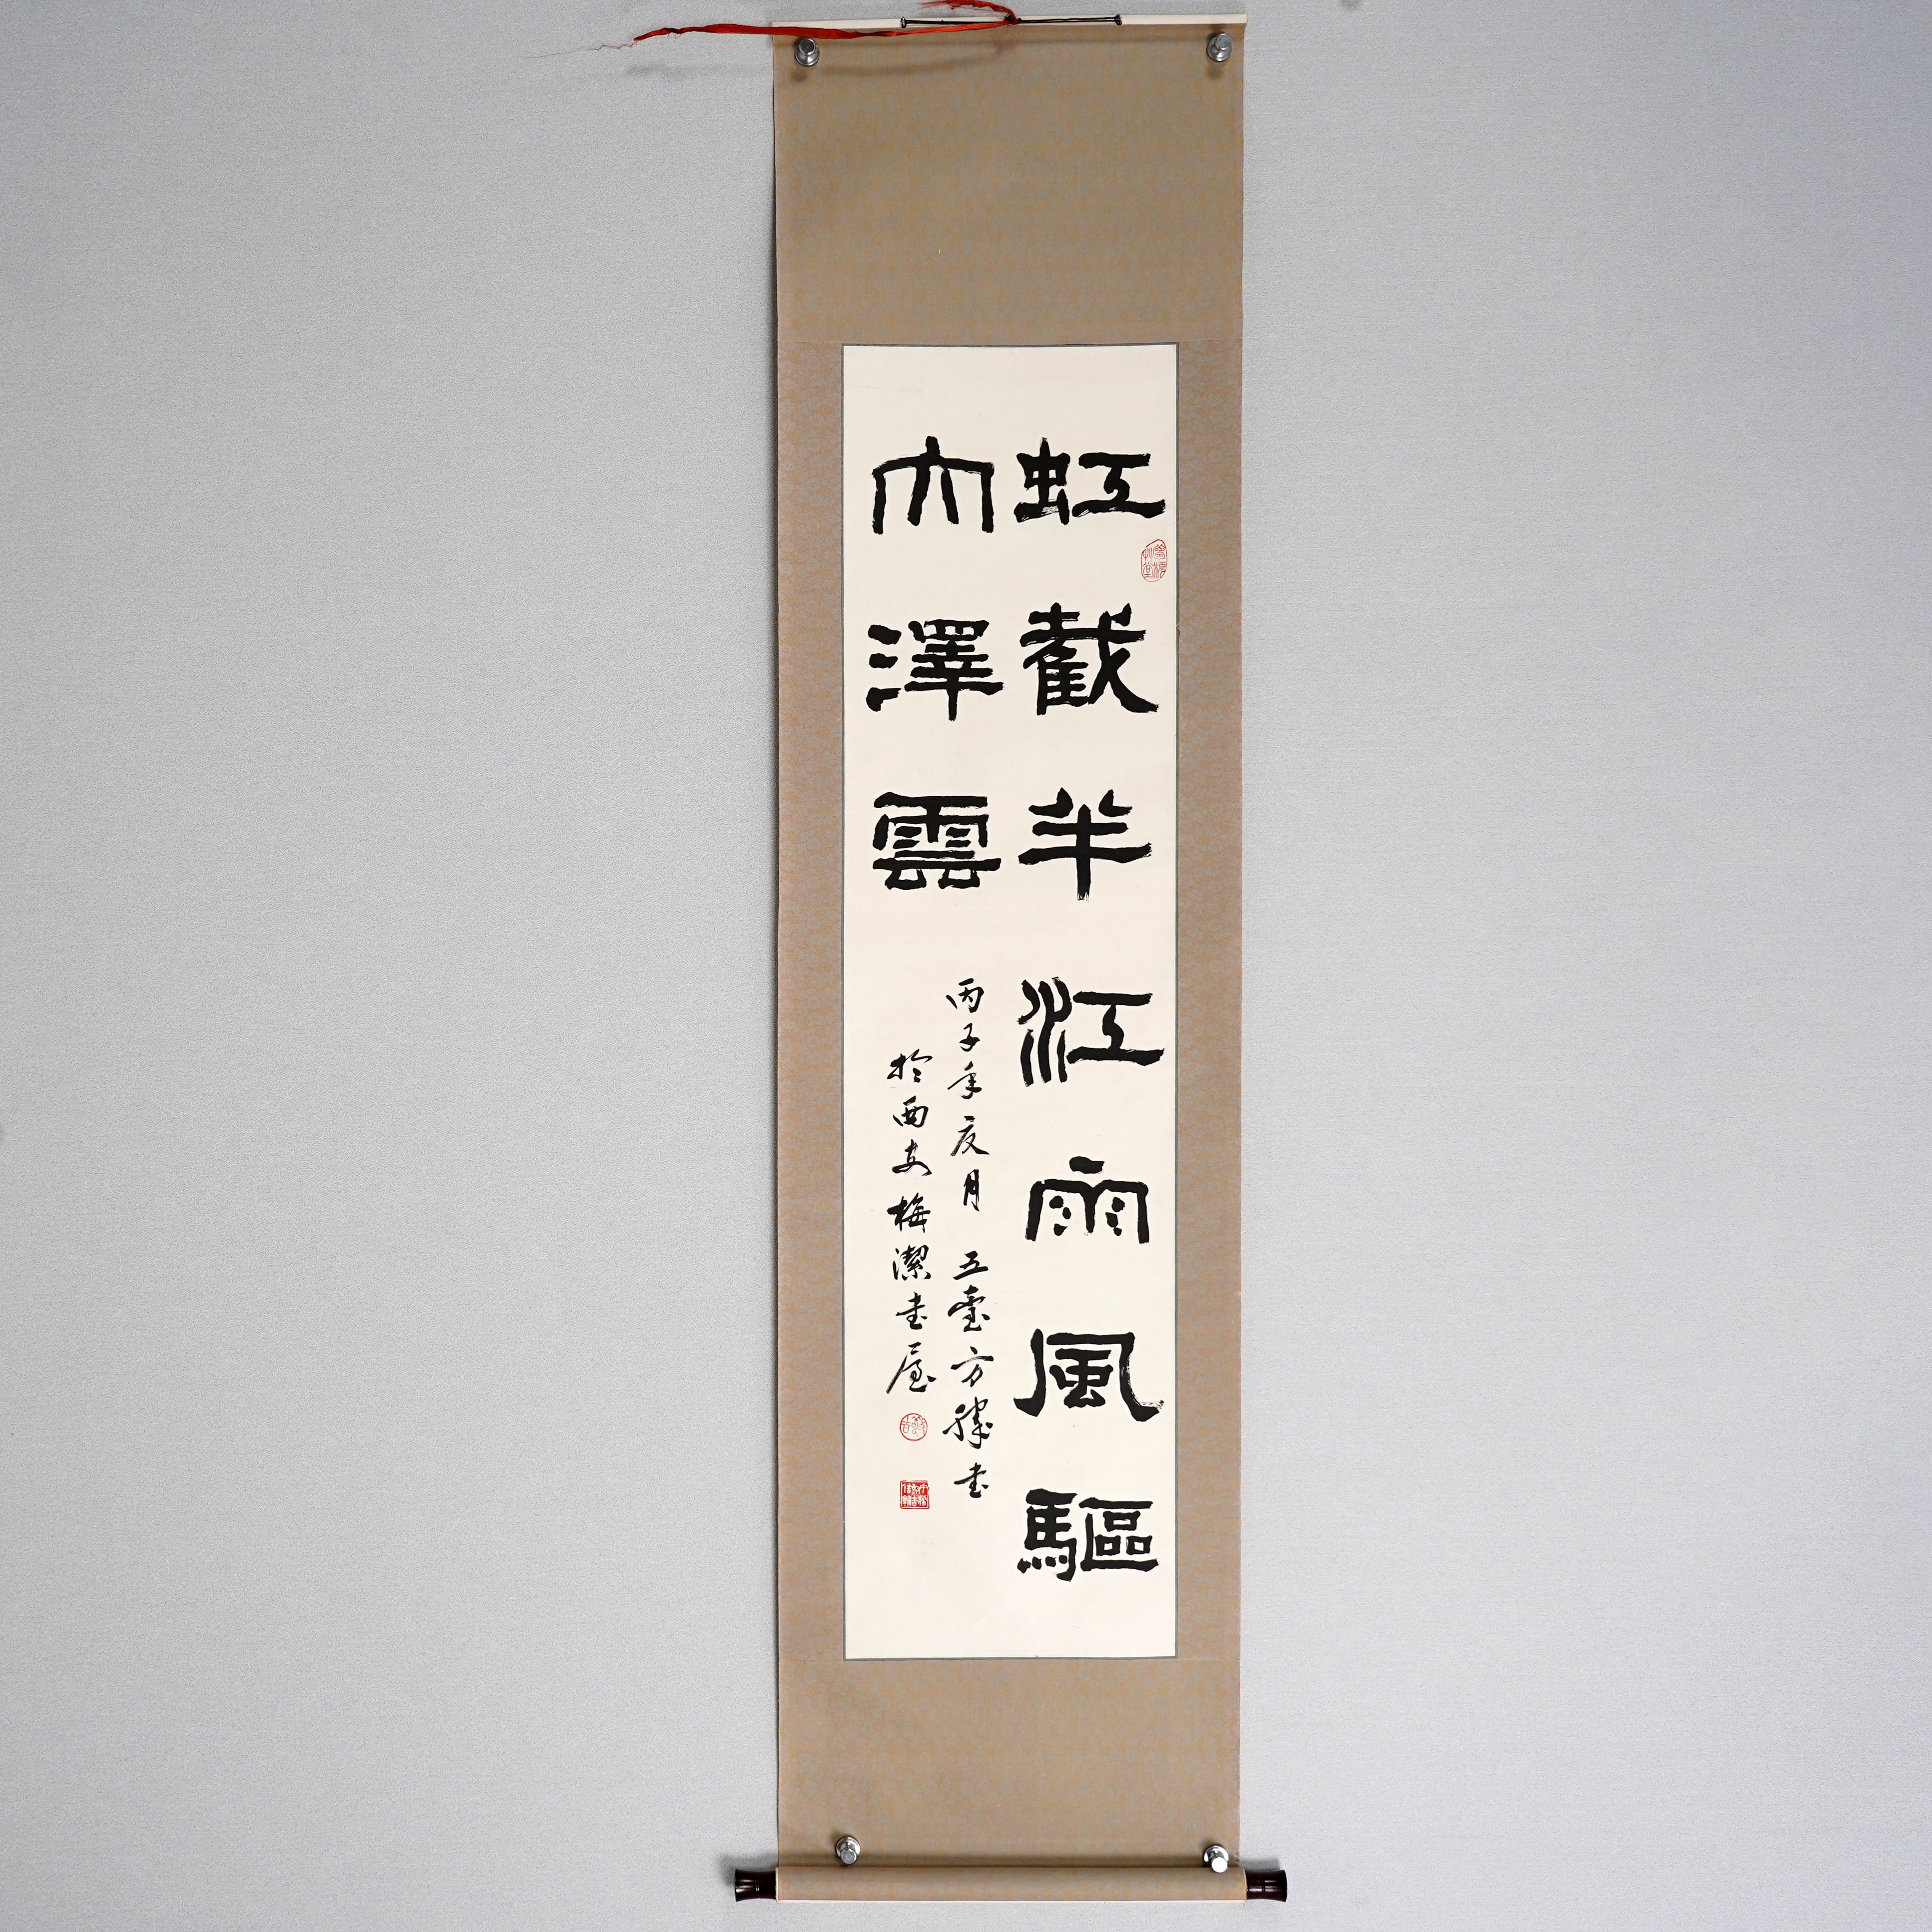 虹截半江雨風驅
大澤雲
丙子年夏月 五臺方勝書
於西安梅潔書屋